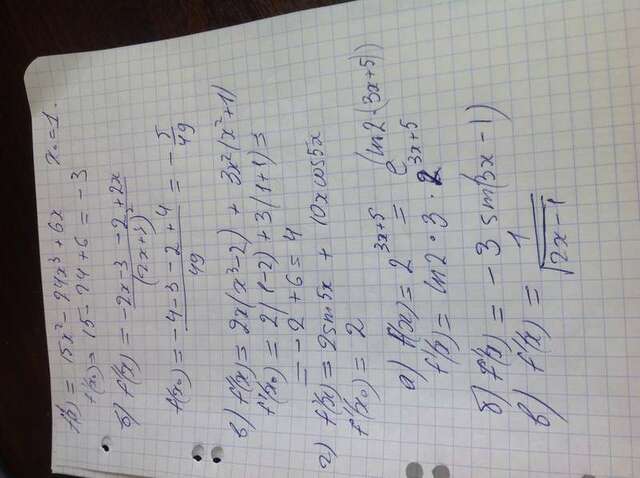 f'(x) = 15x² - 24x³ + 6x x₀ = 1.
f'(x₀) = 15 - 24 + 6 = -3
б) f'(x) = (-2x-3 -2+2x)/(2x+3)²
f'(x₀) = (-4-3-2+4)/49 = -5/49
в) f'(x) = 2x(x³-2) + 3x²(x²+1)
f'(x₀) = 2(1-2) + 3(1+1) =
= -2 + 6 = 4
г) f'(x) = 2sin5x + 10xcos5x
f'(x₀) = 2
а) f(x) = 2^(3x+5) = e^(ln2·(3x+5))
f'(x) = ln2 · 3 · 2^(3x+5)
б) f'(x) = -3 sin(3x-1)
в) f'(x) = 1/√(2x-1)